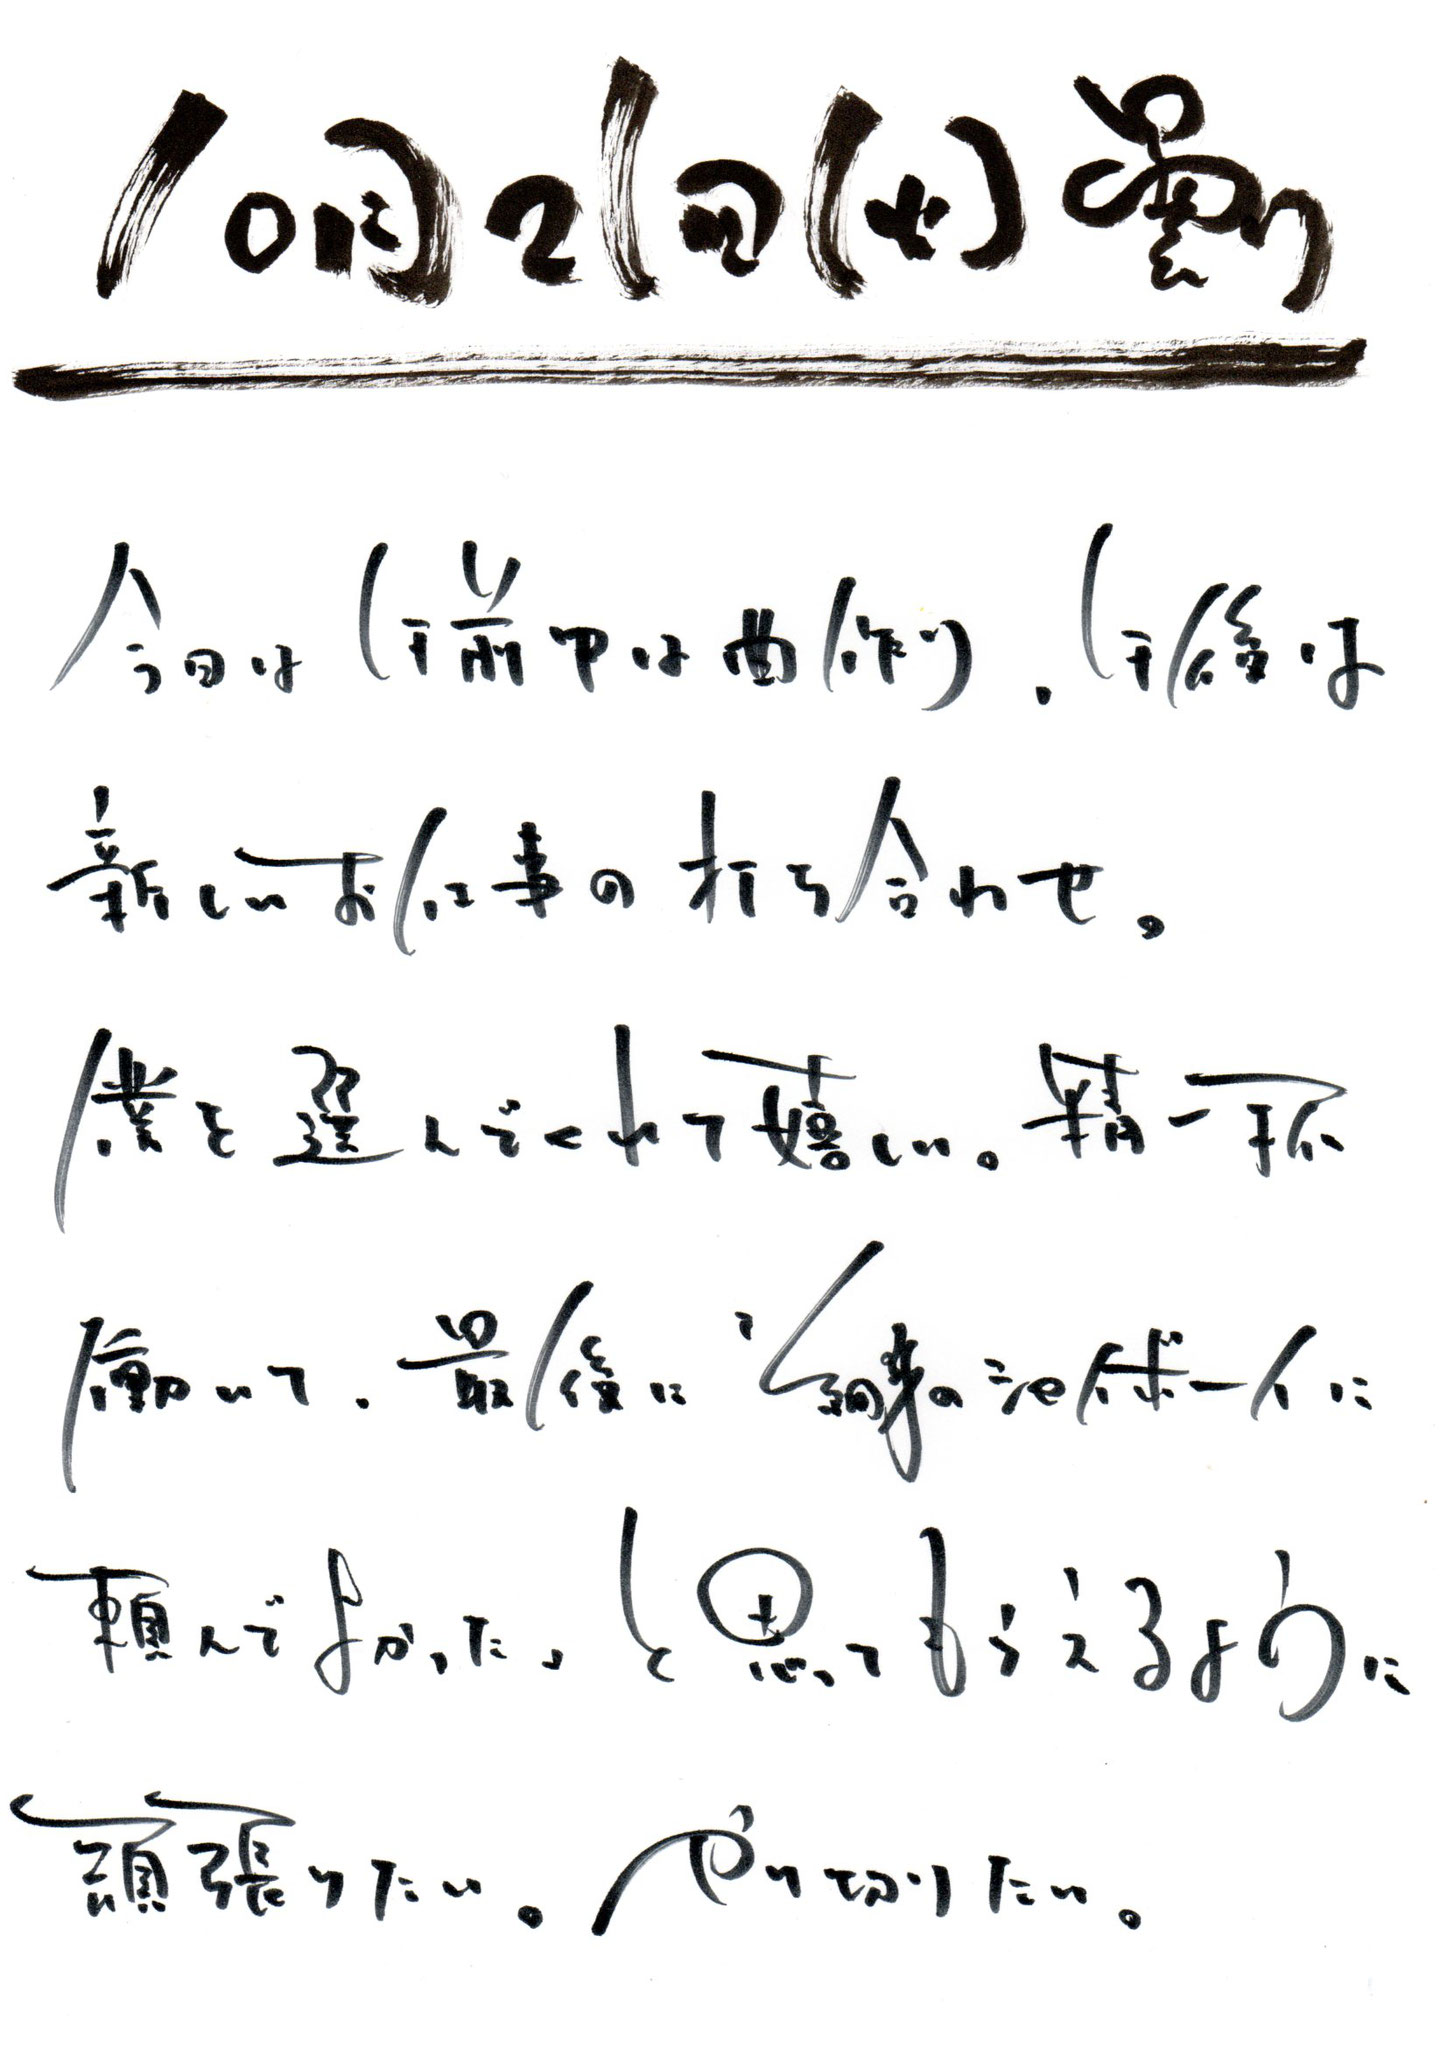 10月21日(火)曇り
今日は午前中は曲作り、午後は
新しいお仕事の打ち合わせ。
僕を選んでくれて嬉しい。精一杯
働いて、最後に「細身のシャイボーイに
頼んでよかった」と思ってもらえるように
頑張りたい。やり切りたい。